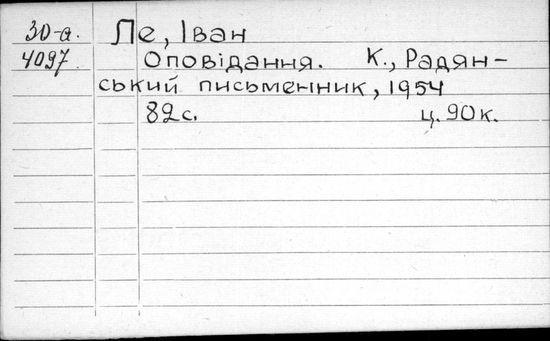 30-а. Ле, Іван
4097. Оповідання. К., Радян-
ський письменник, 1954
82с. ц. 90к.